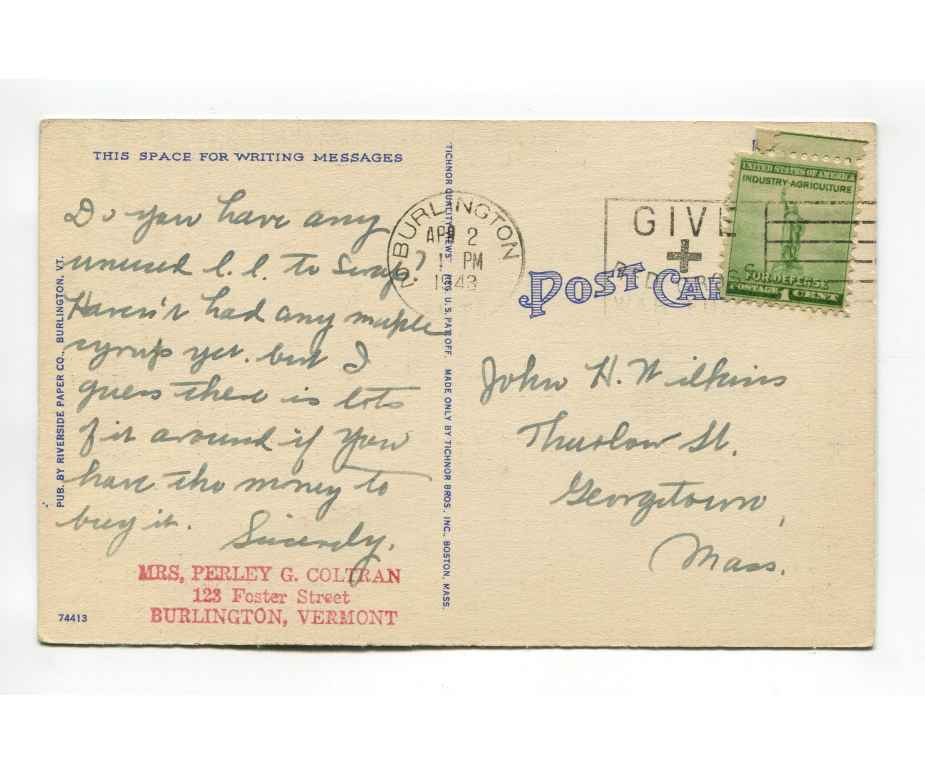 THIS SPACE FOR WRITING MESSAGES
Do you have any
unused l.l. to Swap.
Haven't had any maple
syrup yet. but I
guess there is lots
of it around if you
have the money to
buy it.
Sincerely,
MRS, PERLEY G. COLTRAN
123 Foster Street
BURLINGTON, VERMONT
74413
PUB. BY RIVERSIDE PAPER CO., BURLINGTON, VT.
TICHNOR QUALITY VIEWS REG. U. S. PAT. OFF. MADE ONLY BY TICHNOR BROS. INC., BOSTON, MASS.
BURLINGTON
APR 2
7 PM
1943
GIVE
POST
UNITED STATES OF AMERICA
INDUSTRY AGRICULTURE
FOR DEFENSE
POSTAGE 1 CENT
John H. Wilkins
Thurlow St.
Georgetown,
Mass.